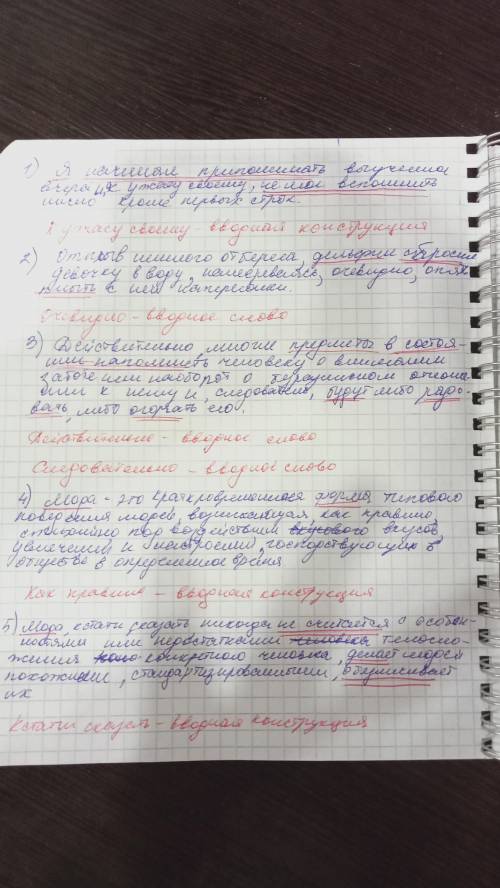 1) Я начинаю припоминать выученное
вчера и, к ужасу своему, не мог вспомнить
ничего кроме первых строк.
К ужасу своему - вводная конструкция
2) Отплыв немного от берега, дельфин сбросил
девочку в воду, намереваясь, очевидно, опять
плыть с ней наперегонки.
Очевидно - вводное слово
3) Действительно, многие предметы в состоя-
нии напоминать человеку о внимании
заботе или наоборот о
к нему и, следовательно, будут либо радо-
вать, либо огорчать его.
Действительно - вводное слово
Следовательно - вводное слово
4) Мода - это кратковременная форма типового
поведения людей, возникающая как правило
стихийно под воздействии вкусов
увлечений и настроений, господствующих в
обществе в определенное время
Как правило - вводная конструкция
5) Мода, кстати сказать никогда не считается с особен-
ностями или недостатками телосло-
жения конкретного человека, делает людей
похожими, стандартизированными, обезличивает
их
Кстати сказать - вводная конструкция